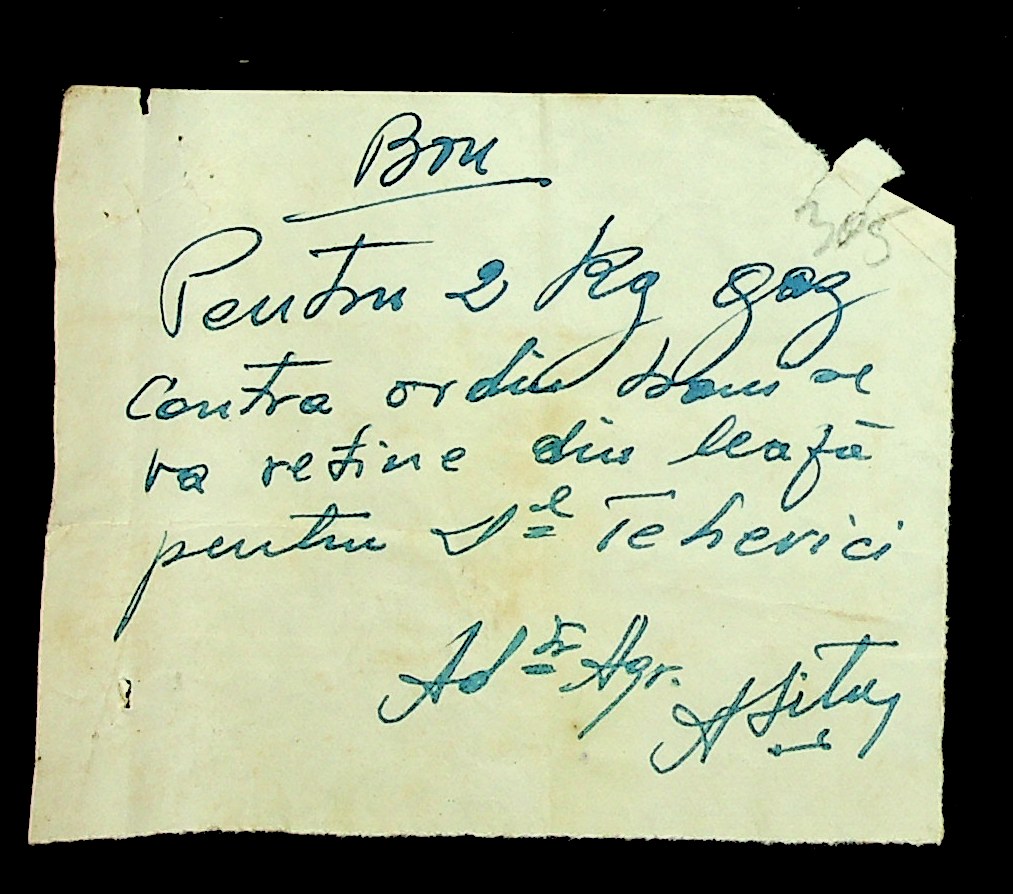 Bon
305
Pentru 2 Kg gaz
contra ordin se
va reține din leafă
pentru Dl Teherici
Adtr Agr.